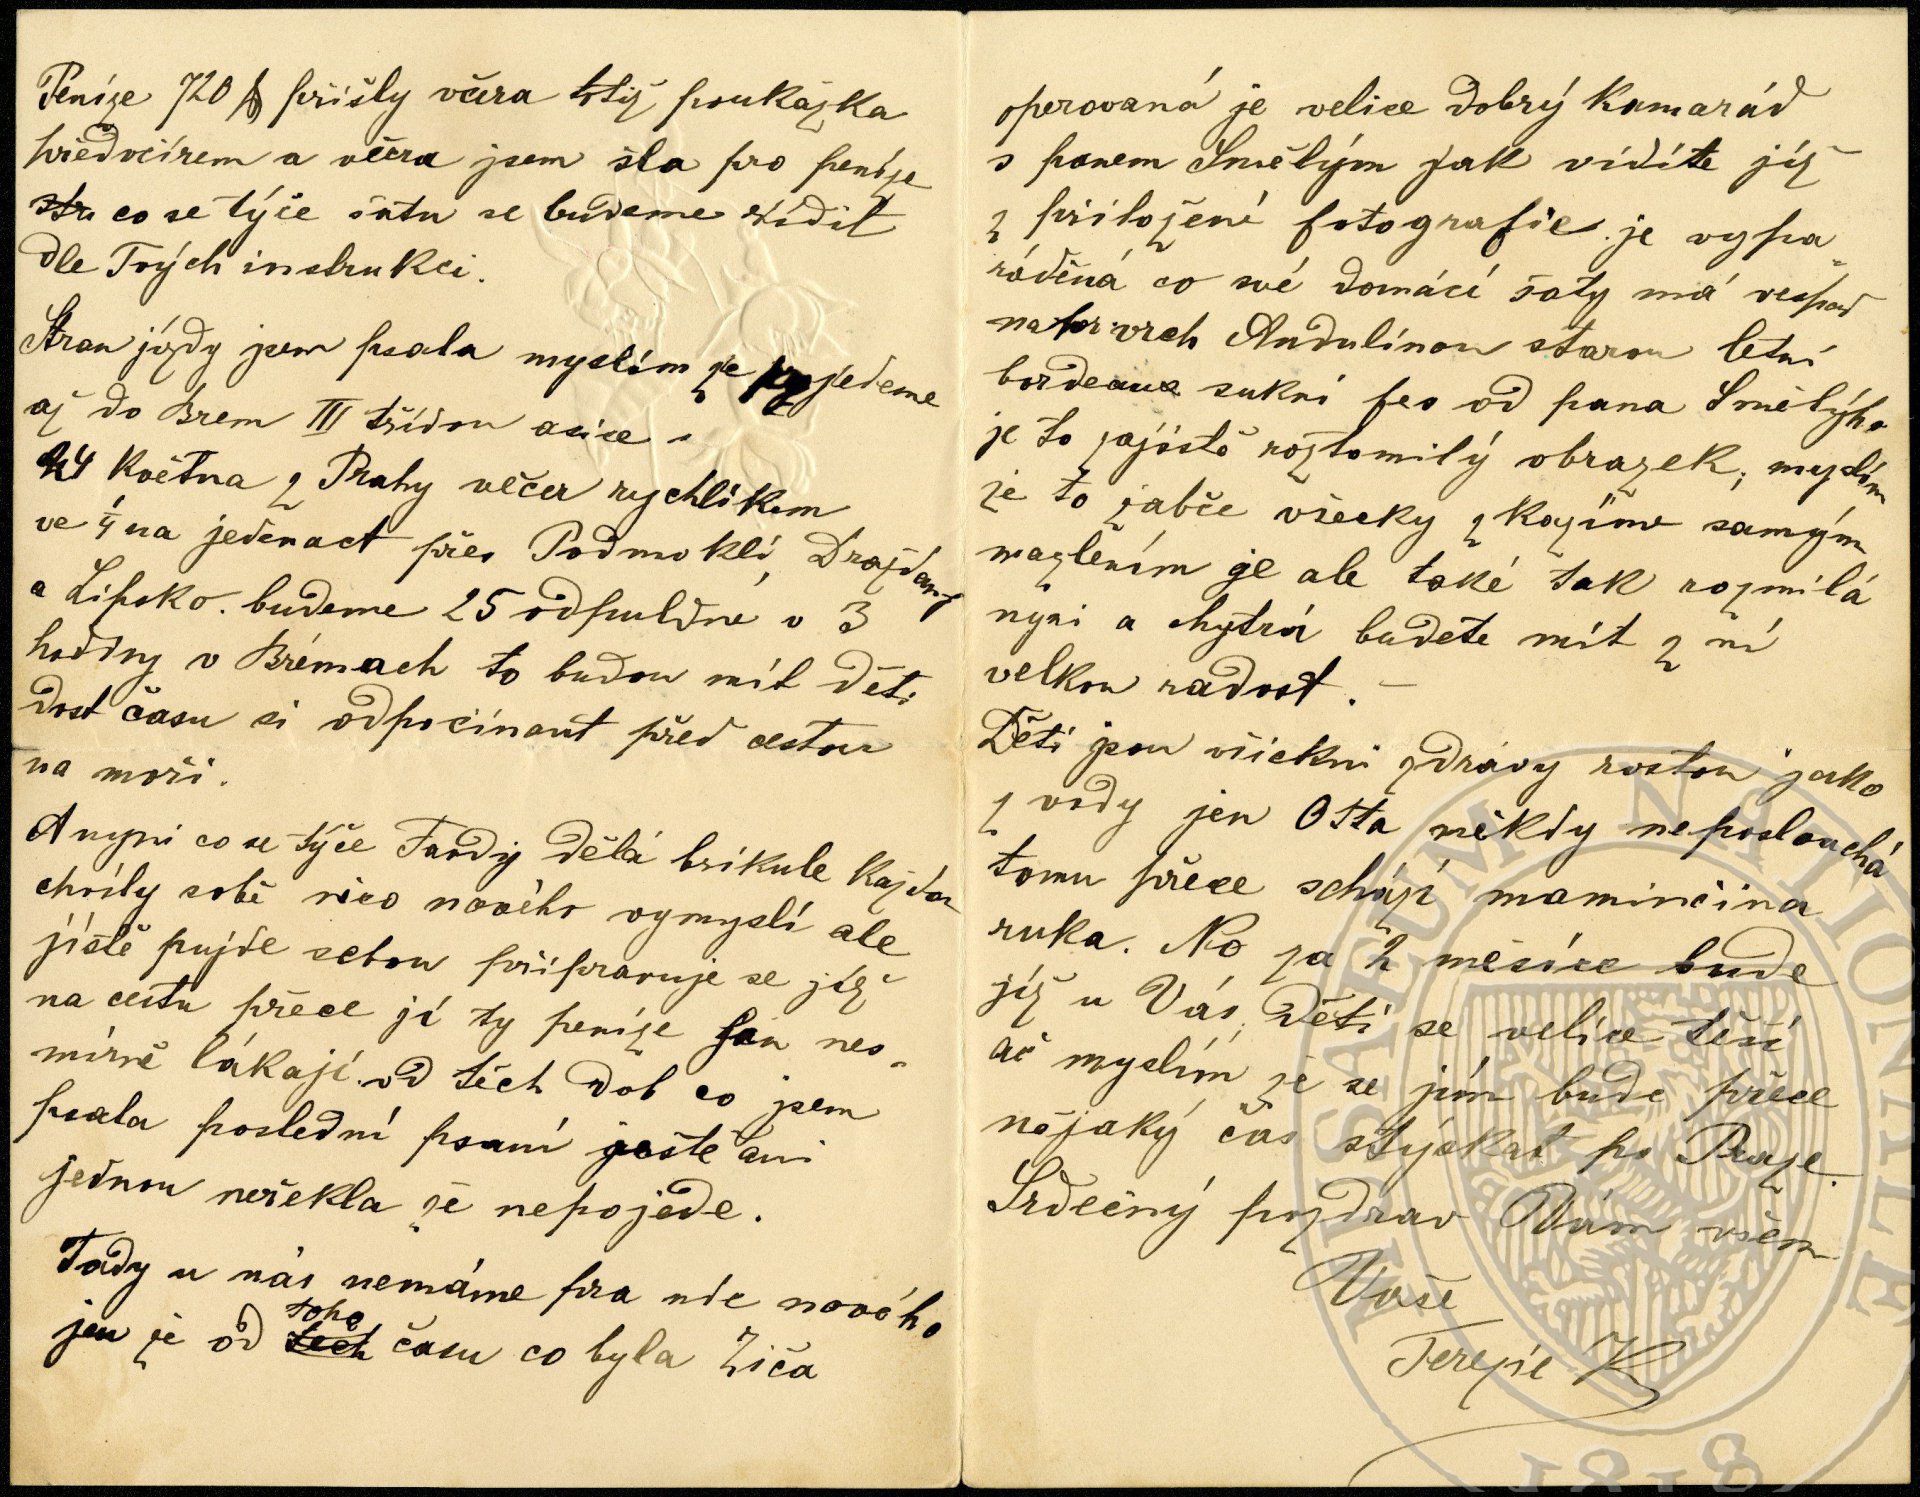 Peníze 720 přišly včera totiž poukázka
předvčírem a včera jsem šla pro peníze
stra co se týče šatu se budeme řídit
dle Tvých instrukci.
Stran jízdy jsem psala myslím že pojedeme
až do Brem III třídou asice
24 Května z Prahy večer rychlíkem
ve ¼ na jedenact přes Podmoklí, Draždany
a Lipsko. budeme 25 odpuldne v 3
hodiny v Brémach to budou mít děti
dost času si odpočinout před cestou
na moři.
A nyni co se týče Fandy dělá brikule každou
chvíly sobě něco nového vymyslí ale
jistě pujde sebou připravuje se již
na cestu přece jí ty peníze jen nes-
mírně lákají. od těch dob co jsem
psala poslední psaní ještě ani
jednou neřekla že nepojede.
Tady u nás nemáme pra nic nového
jen je od toho
těch času co byla Ziča
operovaná je velice dobrý kamarád
s panem Smělým jak vidíte již
z přiložení fotografie. je vypa-
ráděná co své domácí šaty má vespod
na por vrch Andulinou starou letní
bordeaux sukni feo od pana Smělýho
je to zajisté roztomilý obrazek, myslím
že to žabče všecky zkazíme samým
mazlením je ale také tak rozmilá
nyni a chytrá budete mít z ní
velkou radost. –
Děti jsou všickni zdrávy rostou jako
z vody jen Otta někdy neposlouchá
tomu přece scházi maminčina
ruka. No za 2 měsíce bude
již u Vás, Děti se velice těší
ač myslím že se jim bude přece
nějaký čas stýskat po Praze.
Srdečný pozdrav Vám všem
Vaše
Terezie K
MUSAEUM NATIONALE
1818